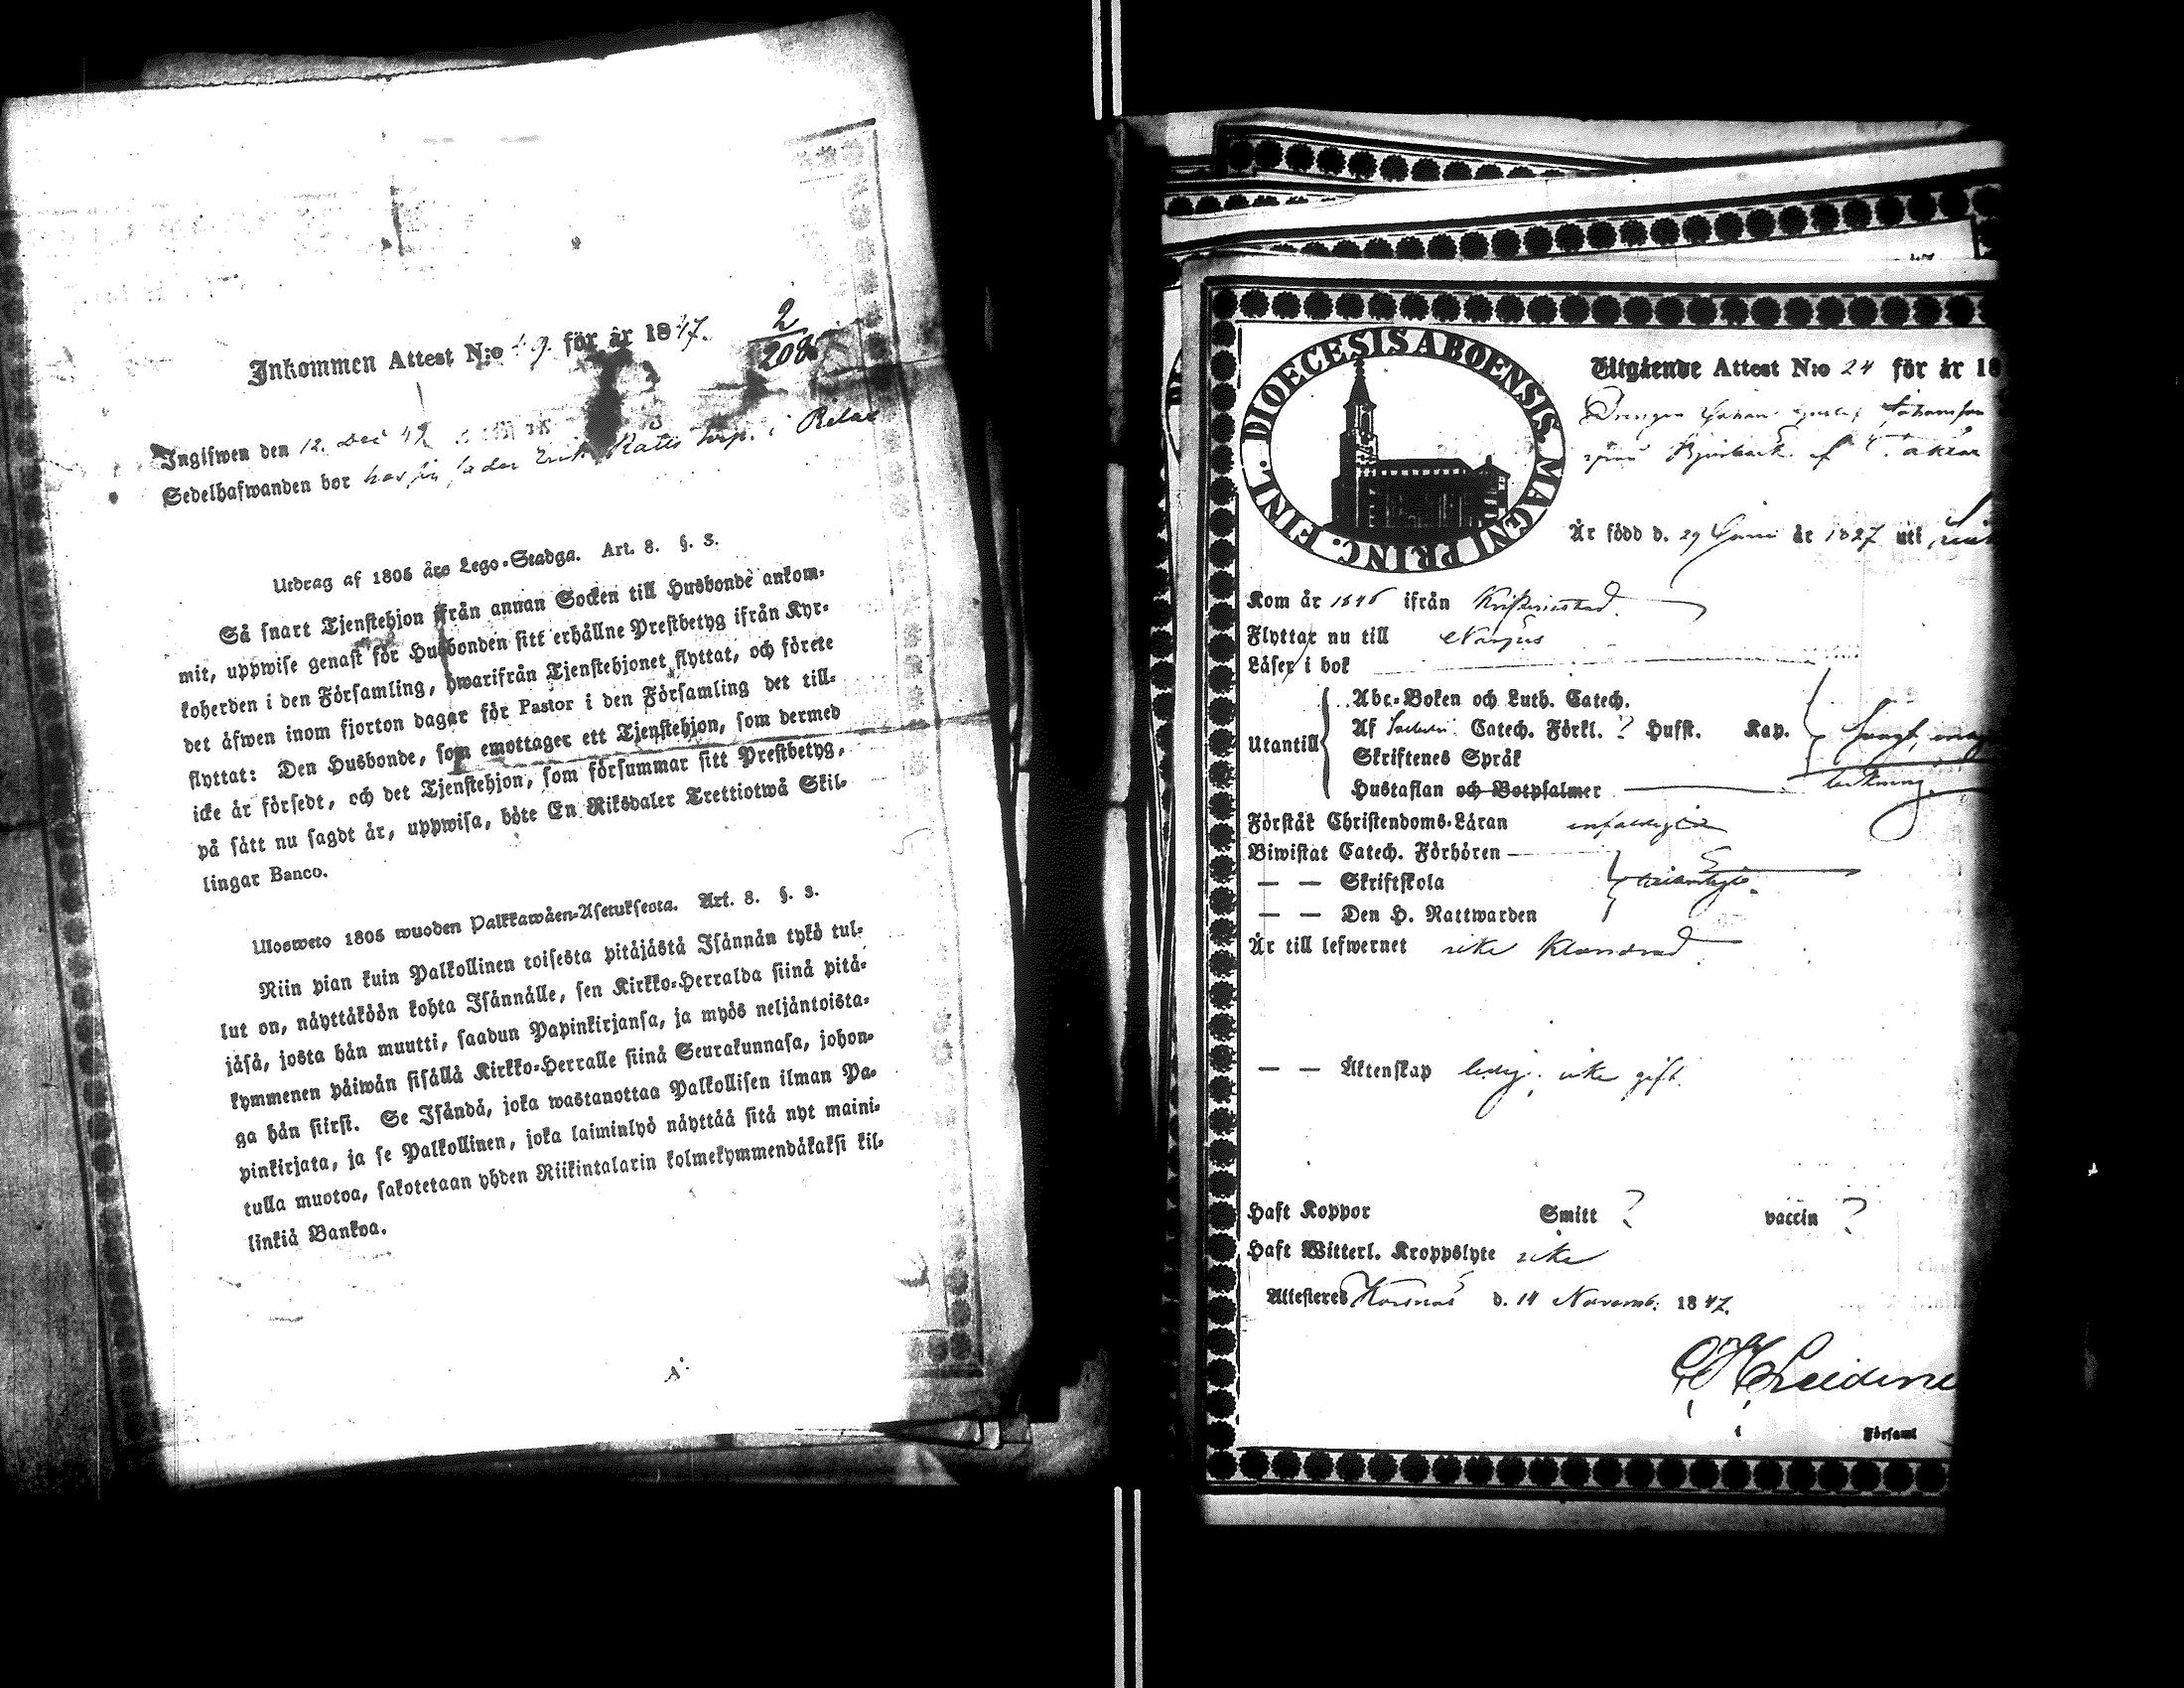 Inkommen Attest N:o 19. för år 1847.
2
208
Ingifwen den 12. Dec 47
Sedelhafwanden bor hos sin fader Erik torp. i
Utdrag af 1805 års Lego-Stadga. Art. 8. §. 3.
Så snart Tjenstehjon ifrån annan Socken till Husbonde ankom-
mit, uppwise genast för Husbonden sitt erhållne Prestbetyg ifrån Kyr-
koherden i den Församling, hwarifrån Tjenstehjonet flyttat, och förete
det äfwen inom fjorton dagar för Pastor i den Församling det till-
flyttat: Den Husbonde, som emottager ett Tjenstehjon, som dermed
icke är försedt, och det Tjenstehjon, som försummar sitt Prestbetyg,
på sätt nu sagdt är, uppwisa, böte En Riksdaler Trettiotwå Skil-
lingar Banco.
Ulosweto 1805 wuoden Palkkawäen-Asetuksesta. Art. 8. §. 3.
Niin pian kuin Palkollinen toisesta pitäjästä Isännän tykö tul-
lut on, näyttäköön kohta Isännälle, sen Kirkko-Herralda siinä pitä-
jäsä, josta hän muutti, saadun Papinkirjansa, ja myös neljäntoista-
kymmenen päiwän sisällä Kirkko-Herralle siinä Seurakunnasa, johon-
ga hän siirsi. Se Isändä, joka wastanottaa Palkollisen ilman Pa-
pinkirjata, ja se Palkollinen, joka laiminlyö näyttää sitä nyt maini-
tulla muotoa, sakotetaan yhden Riikintalarin kolmekymmendäkaksi kil-
linkiä Bankoa.
DIOECESIS ABOENSIS. MAGNI PRINC. FINL.
Utgående Attest N:o 24 för år 18
Drengen Johan Gustaf Johansson
från
Är född d. 29 Junii år 1827 uti
Kom år 1846 ifrån Kristinestad.
Flyttar nu till Närpes
Läser i bok
Abc-Boken och Luth. Catech.
Utantill Af Catech. Förkl. ? Husst. Kap.
Skriftenes Språk
Hustaflan och Botpsalmer
Förstår Christendoms-Läran enfaldigt
Biwistat Catech. Förhören
— — Skriftskola
— — Den H. Nattwarden
Är till lefwernet icke klandrad.
— — Äktenskap ledig, icke gift.
Haft Koppor Smitt ? vaccin ?
Haft Witterl. Kroppslyte icke
Attesteres Korsnäs d. 14 Novemb: 1847.
Församl